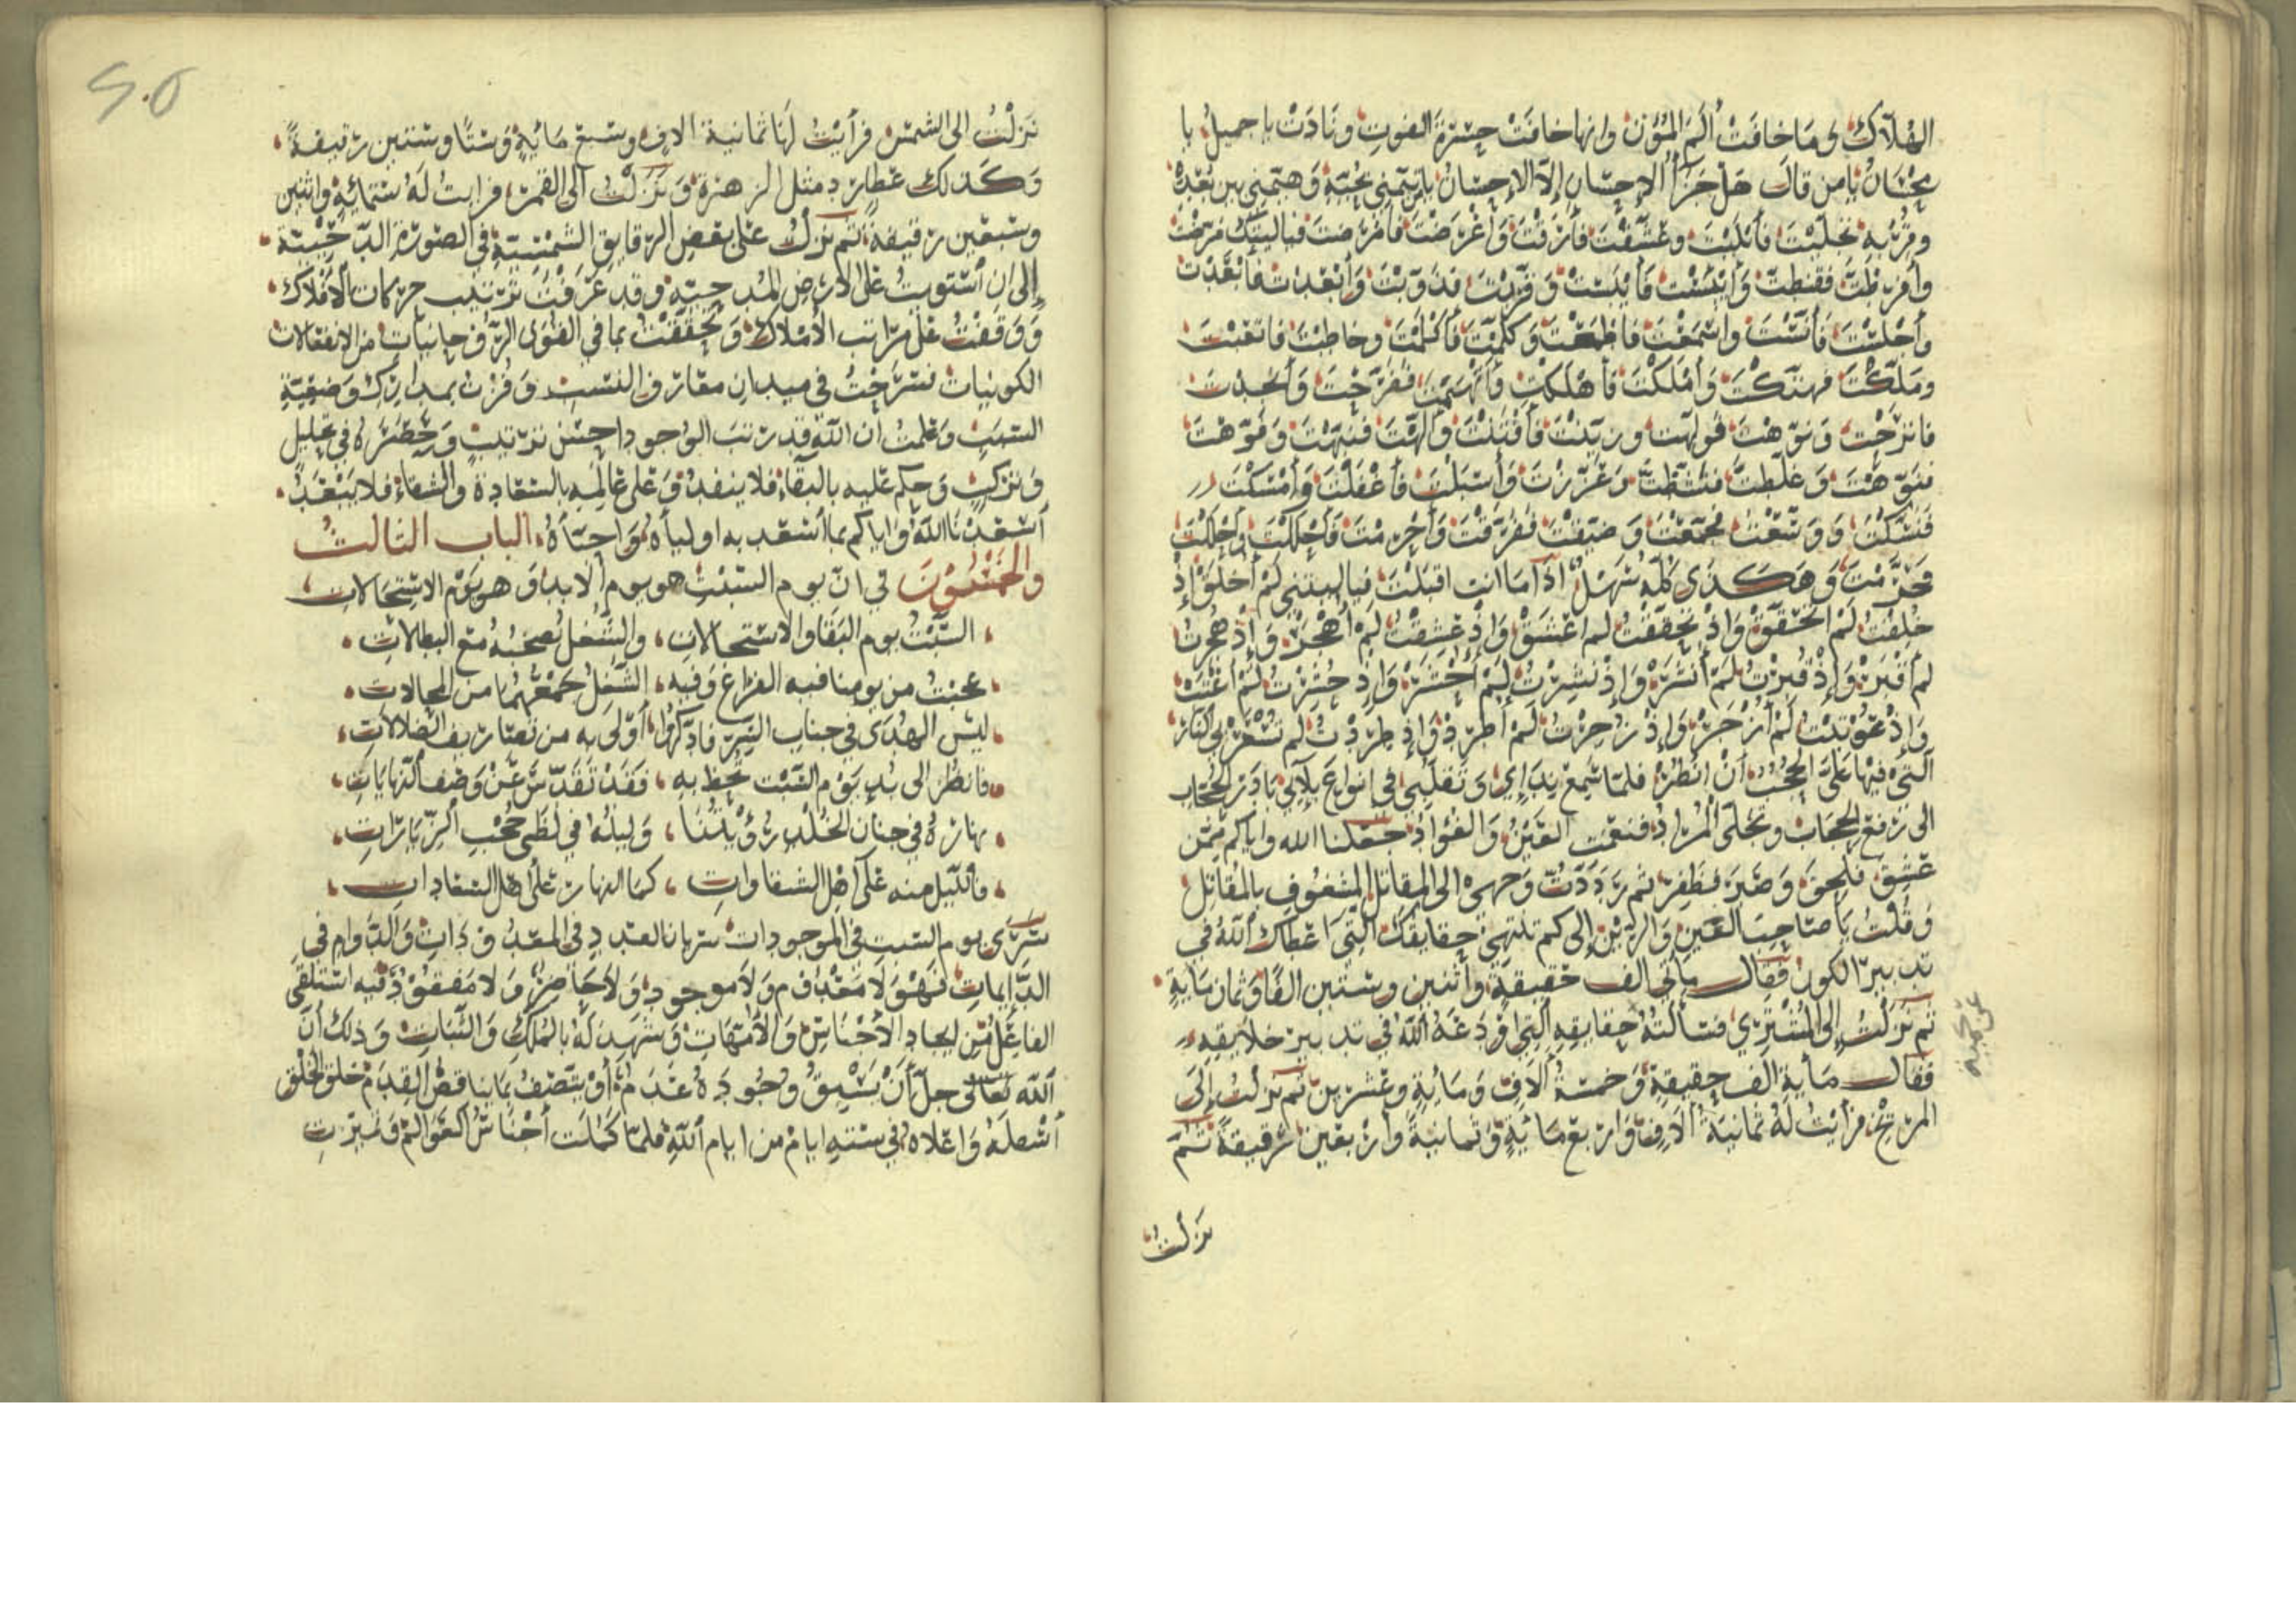 الهلاك وما خافت ألم الموت وانها خافت حسرة الفوت ونادت يا جميل يا
محسان يا من قال هل جزأ الإحسان إلا الإحسان يا من تيمني بحبه وهيمني بين بعده
وقربه تجليت فأبليت وعشقت فأرقت وأعرضت فأمرضت فيا ليتك مرضت
وأفرطت فقنطت وأيئست وقربت فدوبت وأبعدت فأبعدت
وأجلست فأنست واسمعت فاطمعت وكلمت فأكلمت وخاطبت فاتعبت
وملكت فهتكت وأملكت فأهلكت وأتهمت ففرحت وأنجدت
فانرحت ونوهت فولهت وزينت فأفتنت وألهت فنبهت وفوهت
فتوهت وغلطت فنشطت وعززت وأسبلت فأغفلت وأمسكت
فنسكت ووسعت فجمعت وضيقت ففرقت وأحرمت فأحللت وأحللت
فحرمت وهكذى كله سهل اذا ما انت اقبلت فيا ليتني لم أخلق وإذ
خلقت لم اتحقق وإذ تحققت لم اعشق وإذ عشقت لم أهجر وإذ هجرت
لم أقبر وإذ قبرت لم أنشر وإذ نشرت لم أحشر وإذ حشرت لم أعتب
وإذ عوتبت لم أزجر وإذ زجرت لم أطرد وإذ طردت لم تسعر بي النار
التي فيها على الحجب أن أنظر فلما سمع ندإي وتقلبي في انواع بلآئي بادر الحجاب
الى رفع الحجاب وتجلى المراد فنعمت العين والفؤاد جعلنا الله واياكم ممن
عشق فلحق وصبر فظفر ثم رددت وجهي الى المقاتل المشغوف بالمقاتل
وقلت يا صاحب العين والرين إلى كم تنتهي حقايقك التي اعطاك الله في
تدبير الكون فقال مأتي الف حقيقة وأثنين وستين الفا وثمان ماية
ثم نزلت إلى المشتري فسألته حقايقه التي اودعه الله في تدبير خلايقه
فقال ماية الف حقيقة وخمسة ألاف ومائة وعشرين ثم نزلت إلى
المريخ فرأيت له ثمانية ألاف واربع مائة وثمانية وأربعين رقيقة ثم
نزلت
نزلت الى الشمس فرأيت لها ثمانية الاف وسبع مائة وستا وستين رقيقة
وكذلك عطارد مثل الزهرة ونزلت الى القمر فرايت له ستمائة واثنين
وسبعين رقيقة ثم نزلت على بعض الرقايق الشمسية في الصورة الدحيية
إلى ان أستويت على الارض المدحية وقد عرفت ترتيب حركات الأفلاك
ووقفت على مراتب الأملاك وتحققت بما في القوى الروحانيات من الانفعالات
الكونيات فسرحت في ميدان معارف النسب وفزت بمدارك وضعية
السبب وعلمت أن الله قد رتب الوجود احسن ترتيب وحصره في تحليل
وتركيب وحكم عليه بالبقاء فلا ينفد وعلى عالمه بالسعادة والشقاء فلا يبعد
أسعدنا الله واياكم بما أسعد به اولياه واحبأه الباب الثالث
والخمسون في ان يوم السبت هو يوم ألابد وهو يوم الاستحالات
السبت يوم البقا والاستحالات والشغل يصحبه مع البطالات
عجبت من يومنا فيه الفراغ وفيه الشغل جمعهما من المحالات
ليس الهدى في جناب النير فادكروا أولى به من تصاريف الضلالات
فانظر الى بدء يوم السبت تحظ به فقد تقدس عن وصف النهايات
نهاره في جنان الخلد رؤيتنا وليله في لظى حجب الزيارات
فالليل منه على أهل الشقاوات كما النهار على أهل السعادات
سرى يوم السبت في الموجودات سريان العدد في المعدودات والدوام في
الدايمات فهو لا معدوم ولا موجود ولا حاضر ولا مفقود فيه استلقى
الفاعل من ايجاد الأجناس والأمهات وشهد له بالملك والثبات وذلك أن
الله تعالى جل أن يسبق وجوده عدم أو يتصف بما يناقض القدم خلق الخلق
أسفله واعلاه في ستة ايام من ايام الله فلما كملت أجناس العوالم وميزت